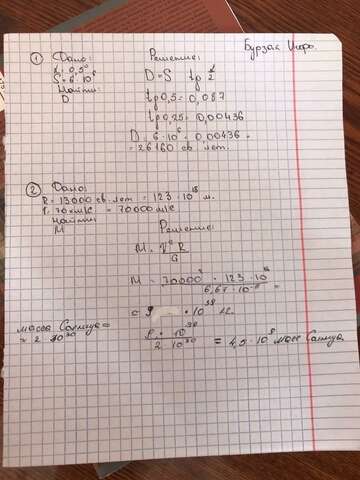 Бурзак Игорь
① Дано:
α = 0,5°
S = 6·10⁶
Найти:
D
Решение:
D = S tg α/2
tg 0,5 = 0,087
tg 0,25 = 0,00436
D = 6·10⁶ · 0,00436 =
= 26160 св лет.
② Дано:
R = 13000 св. лет = 123·10¹⁸ м.
V = 70 км/с = 70000 м/с
Найти:
M
Решение:
M = V² R / G
M = 70000² · 123·10¹⁸ / 6,67·10⁻¹¹ =
= 9 · 10³⁹ кг.
масса Солнца =
= 2 · 10³⁰
9 · 10³⁹ / 2 · 10³⁰ = 4,5 · 10⁹ масс Солнца.